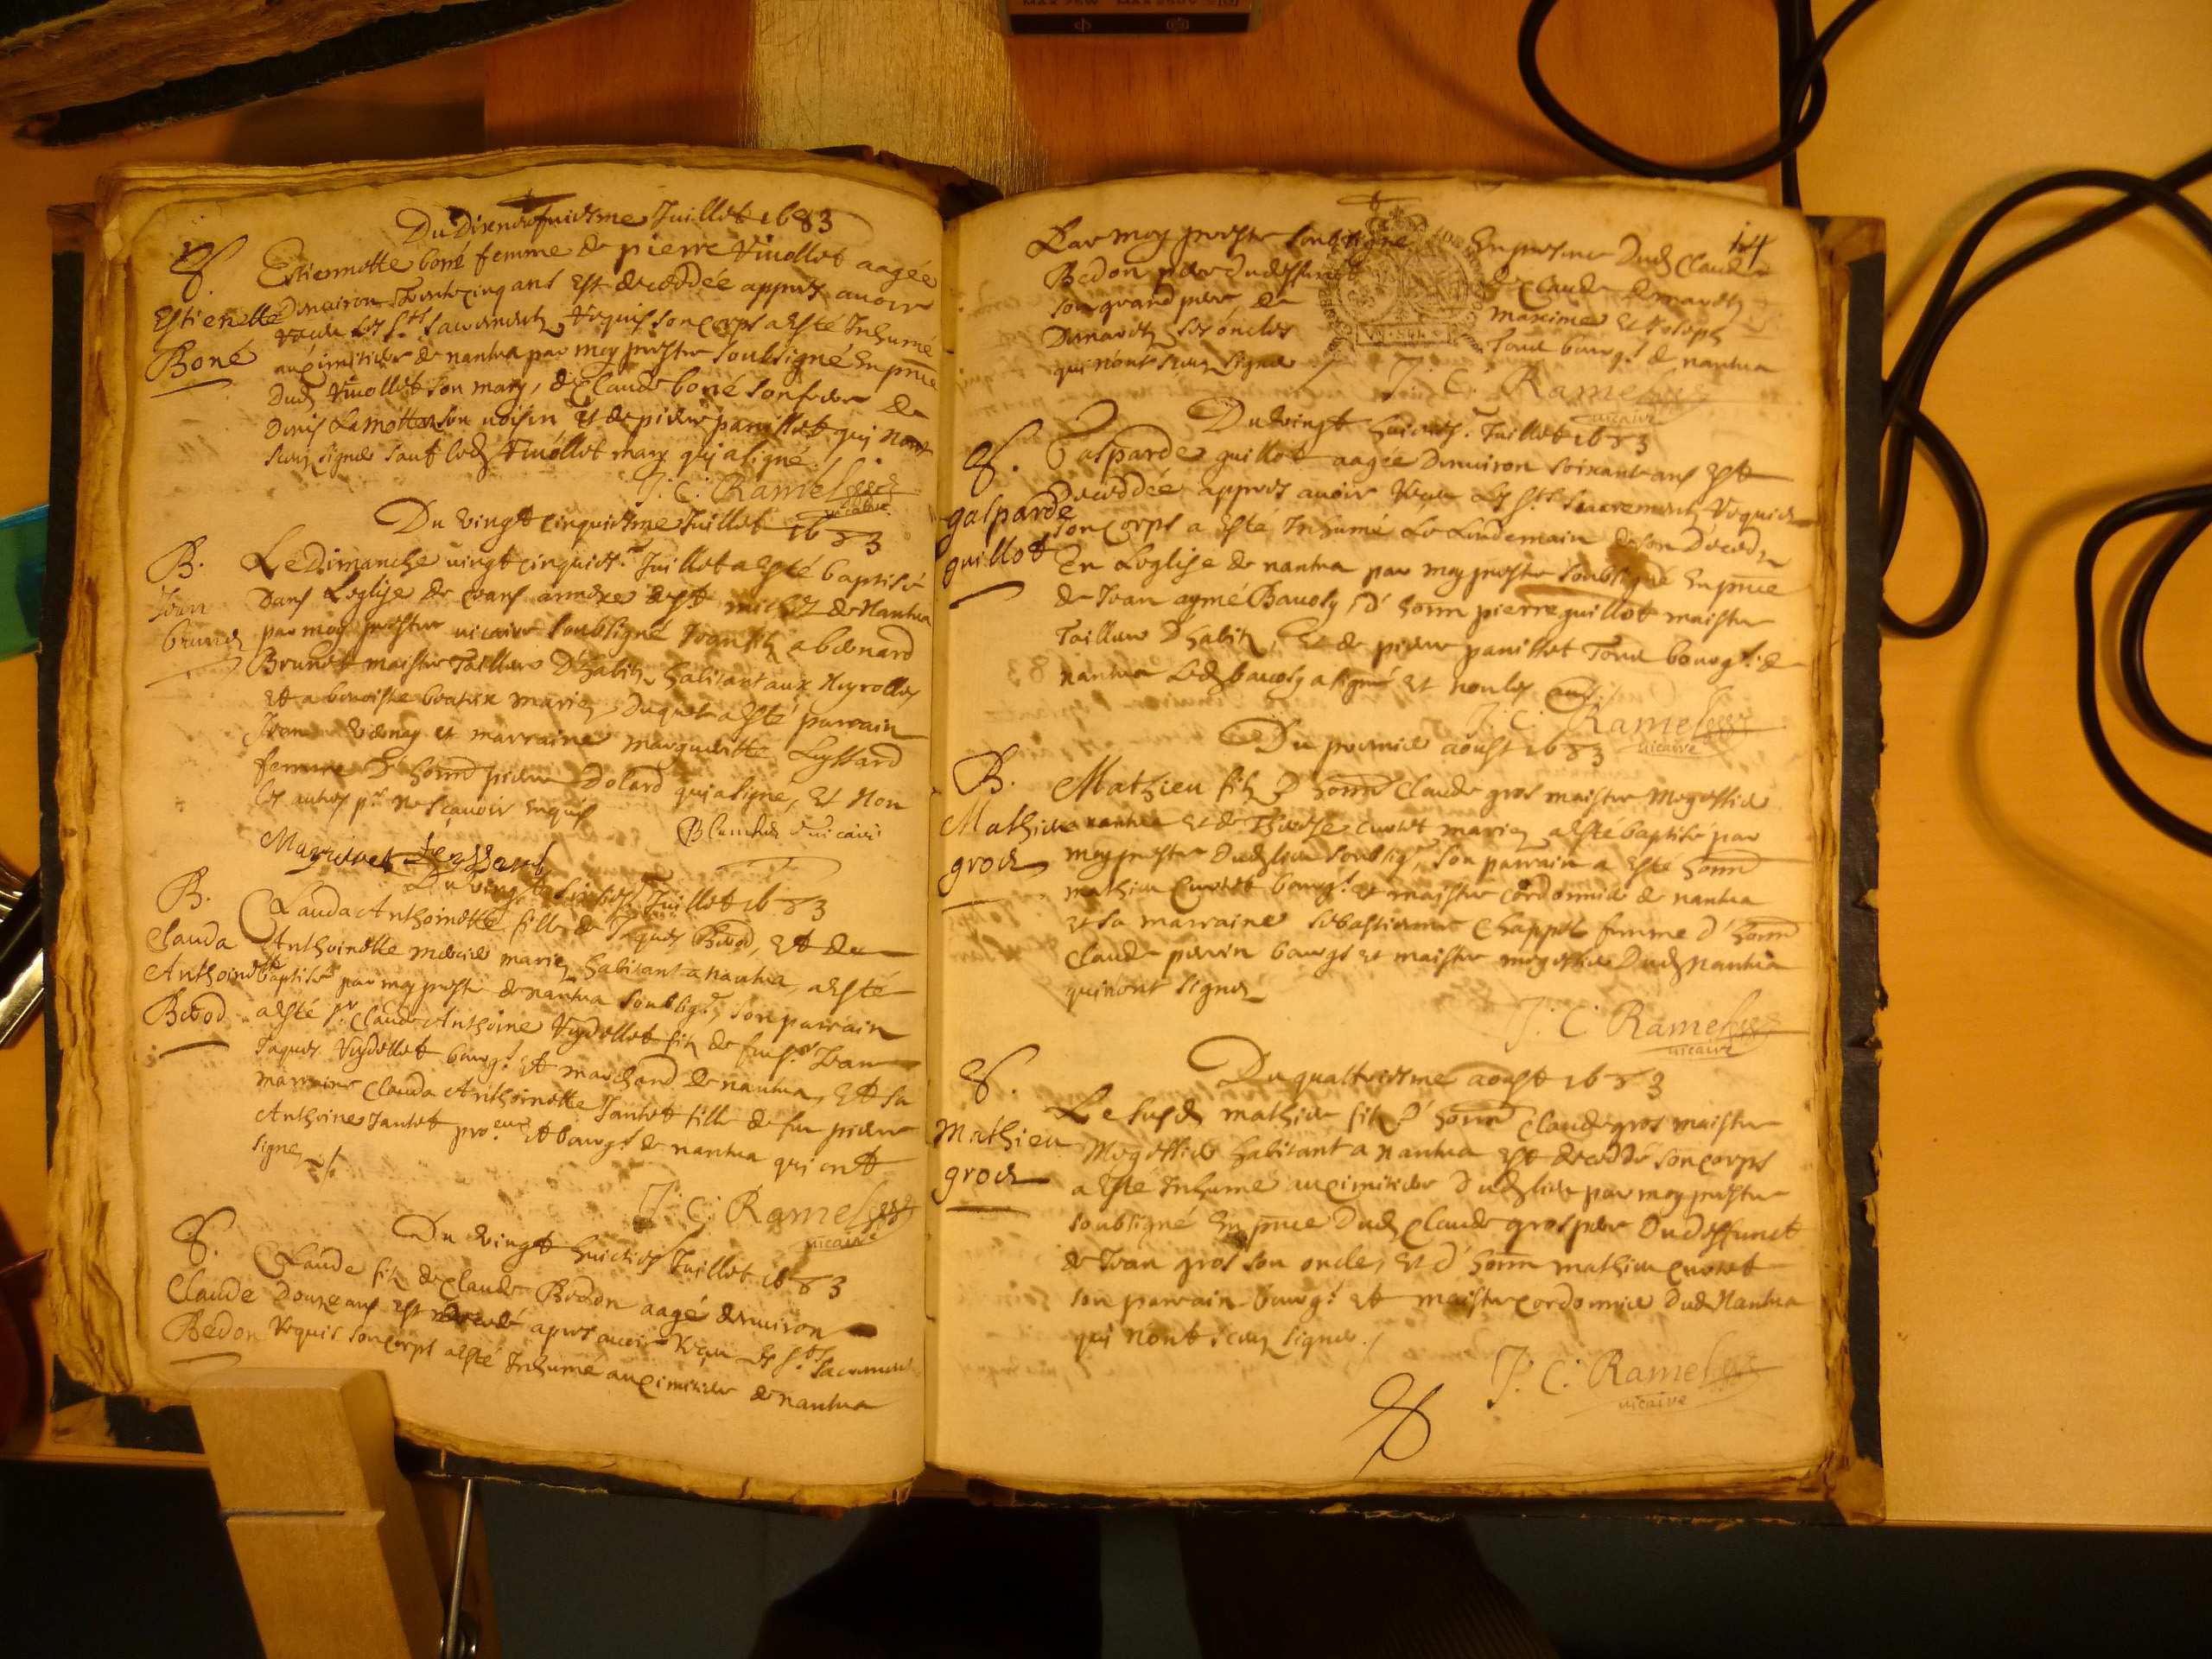 Du Dixneufuiesme Juillet 1683
Estiennette boné femme de pierre Vuollet aagée
Estienette
Boné
Denuiron Trente cinq ans Est decedée apprés auoir
receu les s.ts sacrements, Vequis son corps a Esté Inhumé
au cimitiere de nantua par moy prestre soubsigné En pñce
Dud. Vuollet son mary, de Claude boné son frere de
Denis Lamotte son uoisin Et de pierre panillet qui nont
sceu signer sauf led. Vuollet mary qui a signé
J: C: Ramel
uicaire
Du Vingt cinquiesme Juillet 1683
B.
Jean
brunet
Le Dimanche uingt cinquies.e Juillet a esté baptisé
Dans Leglise de
par moy prestre uicaire soubsigné Jean filz a bernard
Brunet maistre Tailleur D'habitz habitant aux Neyrolles
Et a benoiste beatrix mariez, Duquel a esté parrain
Jean et marraine margueritte Lyssard
femme D' honn pierre Dolard qui a signé, Et Non
les autres p.r ne scauoir Enquis
uicaire
Du vingt Juillet 1683
B.
Clauda
Anthoinette
Clauda Anthoinette fille de Jaques Et de
Anthoinette mercier mariez habitant a nantua, a esté
baptisée par moy prestre de nantua soubsig.é, son parrain
a esté s.r Claude Anthoine Vuydellet filz de feu s.r Jean
Jaques Vuydellet bourg.s Et marchand de nantua, Et sa
marraine Clauda Anthoinette Jantet fille de feu pierre
Anthoine Jantet pro.eur Et bourg.s de nantua qui ont
signez
J: C: Ramel
uicaire
Du Vingt huicties Juillet 1683
Claude
Bedon
Claude filz de Claude Bedon aagé denuiron
Douze ans Est decedé apres auoir receu les s.ts sacrements
Vequis son corps a esté Inhumé au cimitiere de nantua
14
Par moy prestre soubsigné En presence Dud. Claude
Bedon pere dudeffunct de Claude Demaretz
son grand pere de maxime Et Joseph
Demaretz ses oncles Tous bourg.s de nantua
qui n'ont sceu signer
J: C: Ramel
uicaire
Du vingt huicties.e Juillet 1683
galparde
guillot
Galparde guillot aagée Denuiron soixante ans Est
Decedée apprés auoir receu les s.ts sacrements, Vequis
son corps a Esté Inhumé Le Lendemain de son Decedz
En Leglise de nantua par moy prestre soubsigné En pñce
de Jean aymé Bauoly, d' honn pierre guillot maistre
Tailleur D'habitz, Et de pierre panillet Tous bourg.s de
nantua Led. bauoly a signé Et non les autres
J: C: Ramel
uicaire
Du premier aoust 1683
B.
Mathieu
gros
Mathieu filz D' honn Claude gros maistre Megissier
a nantua Et de Therese cuvet mariez a esté baptisé par
moy prestre Dud. lieu soubsig.é, son parrain a esté honn
mathieu cuvet bourg.s et maistre cordonnier de nantua
et sa marraine sebastienne Chappel femme d' honn
Claude perrin bourgs et maistre megissier Dud. Nantua
qui n'ont signez
J: C: Ramel
uicaire
Du quattriesme aoust 1683
Mathieu
gros
Le susd. mathieu filz D' honn Claude gros maistre
Megissier habitant a nantua Est decedé son corps
a esté Inhumé au cimitiere Dud. lieu par moy prestre
soubsigné En pñce Dud. Claude gros pere Dudeffunct
de Jean gros son oncle, Et d' honn mathieu cuvet
son parrain bourg.s Et maistre cordonnier Dud. Nantua
qui n'ont sceu signer
J: C: Ramel
uicaire